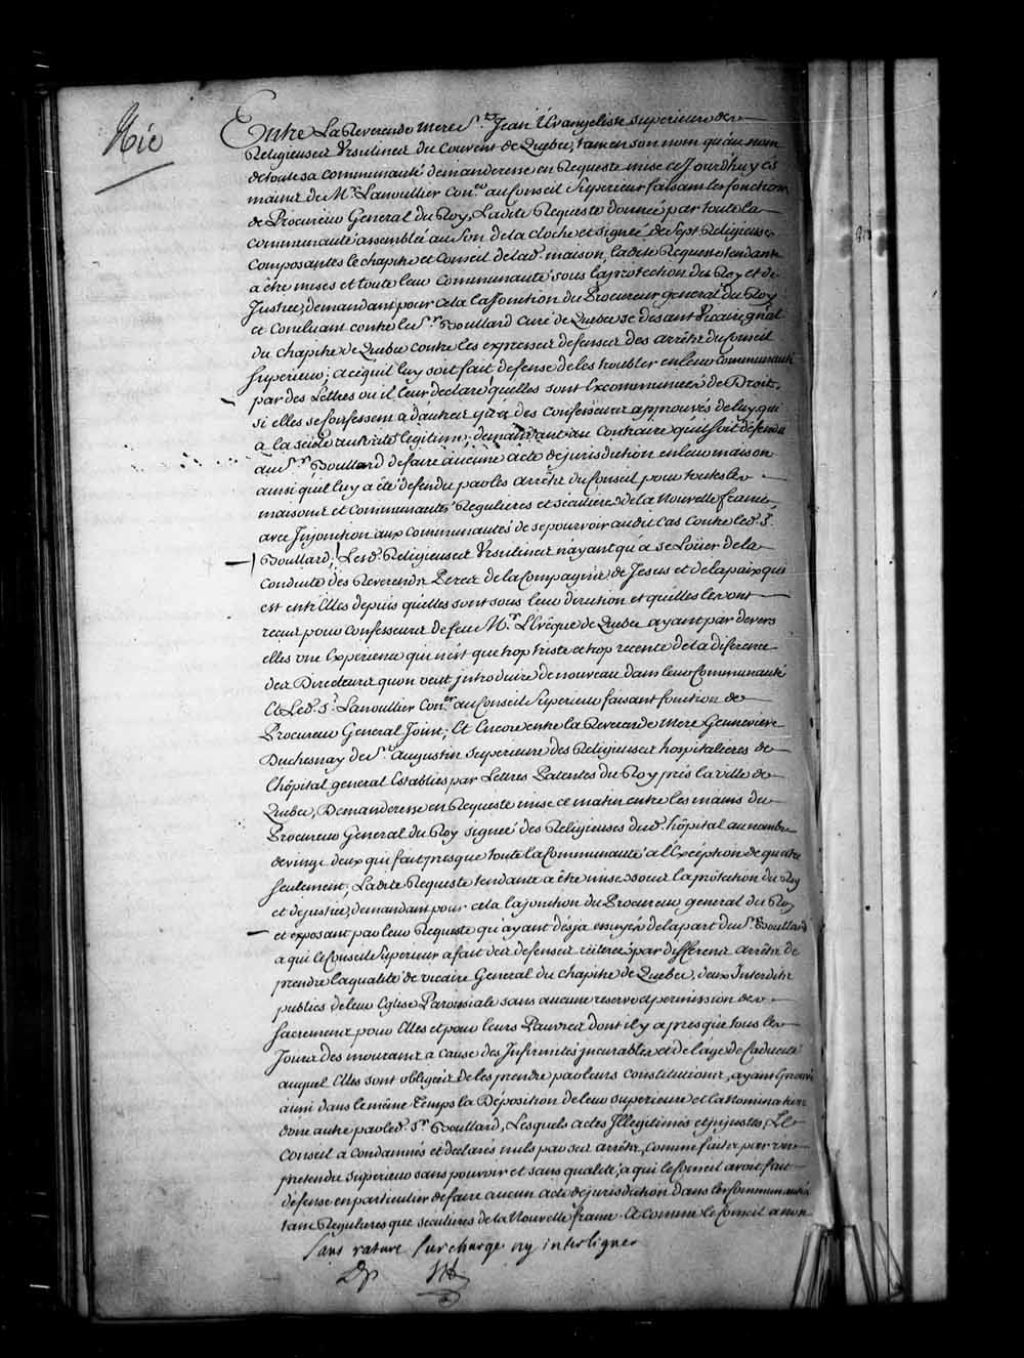 Entre La Reverende Mere S.te Jean L'Evangeliste superieure des
Religieuses Ursulines du Couvent de Quebec, tant en son nom qu'au nom
de toute sa communauté demanderesse en Requeste mise ce Jourd'huy es
mains de M.r Lanoullier Con.er au Conseil Superieur faisant les fonctions
de Procureur General du Roy, Ladite Requeste donnée par toute la
communauté assemblée au Son de la cloche et signée de Sept Religieuses
Composantes le chapitre et Conseil de lad. maison, ladite Requeste tendante
a être mises et toute leur Communauté sous la protection du Roy et de
Justice, demandant pour cela la Jonction du Procureur general du Roy
et Concluant contre le S.r Boullard curé de Quebec se disant Vicaire g'nal
du chapitre de Quebec contre les expresses defenses des arrêts du Conseil
Superieur; a ce qu'il luy soit fait defense de les troubler en leur Communauté
par des Lettres ou il leur declare qu'elles sont Excommuniées de Droit,
si elles se confessent a d'autres qu'a des Confesseurs approuvés de luy qui
a la seule autorité legitime; demandant au Contraire qu'il soit defendu
au S.r Boullard de faire aucune acte de jurisdiction en leur maison
ainsi qu'il luy a été defendu par les arrêts du Conseil pour toutes les
maisons et Communautés Regulieres et séculieres de la Nouvelle france,
avec Injonction aux Communautés de se pourvoir audit cas Contre led. S.r
Boullard; Lesd. Religieuses Ursulines n'ayant qu'a se Loüer de la
conduite des Reverends Peres de la Compagnie de Jesus et de la paix qui
est entr'Elles depuis qu'elles sont sous leur direction et qu'elles les ont
reçus pour Confesseurs de feu M.r L'Evêque de Quebec ayant par devers
elles une Experience qui n'est que trop triste et trop recente de la diference
des Directeurs qu'on veut introduire de nouveau dans leur Communauté
Et Led. S.r Lanoullier Con.er au Conseil Superieur faisant fonction de
Procureur General Joint; Et Encore entre la Reverende Mere Genevieve
Duchesnay de S.t Augustin superieure des Religieuses hospitalieres de
l'hôpital general Establies par Lettres Patentes du Roy près la ville de
Quebec, Demanderesse en Requeste mise ce matin entre les mains du
Procureur General du Roy signée des Religieuses dud. hôpital au nombre
de vingt deux qui fait presque toute la Communauté a l'Exception de quatre
seulement; Ladite Requeste tendante a être mises sous la protection du Roy
et de justice, demandant pour cela la jonction du Procureur general du Roy
et exposant par leur Requeste qu'ayant desja essuyé de la part du S.r Boullard
a qui le Conseil Superieur a fait des defenses reïterées par differens arrêts de
prendre la qualité de vicaire General du chapitre de Quebec, deux Interdits
publics de leur Eglise Paroissiale sans aucune reserve et permission des
sacremens pour Elles et pour leurs Pauvres dont il y a presque tous les
Jours des mourans a cause des Infirmités incurables et de l'age de Caducité
auquel Elles sont obligées de les prendre par leurs Constitutions, ayant
aussi dans le même temps la Déposition de leur superieure et la Nomination
d'une autre par led. S.r Boullard, Lesquels actes Illegitimes et injustes, Le
Conseil a Condamnés et declarés nuls par ses arrêts, Comme faites par un
pretendu superieur sans pouvoir et sans qualité, a qui le Conseil avoit fait
défense en particulier de faire aucun acte de jurisdiction dans les Communautés
tant Regulieres que seculieres de la Nouvelle france. Et comme le Conseil a non
Sans rature surcharge ny interligner